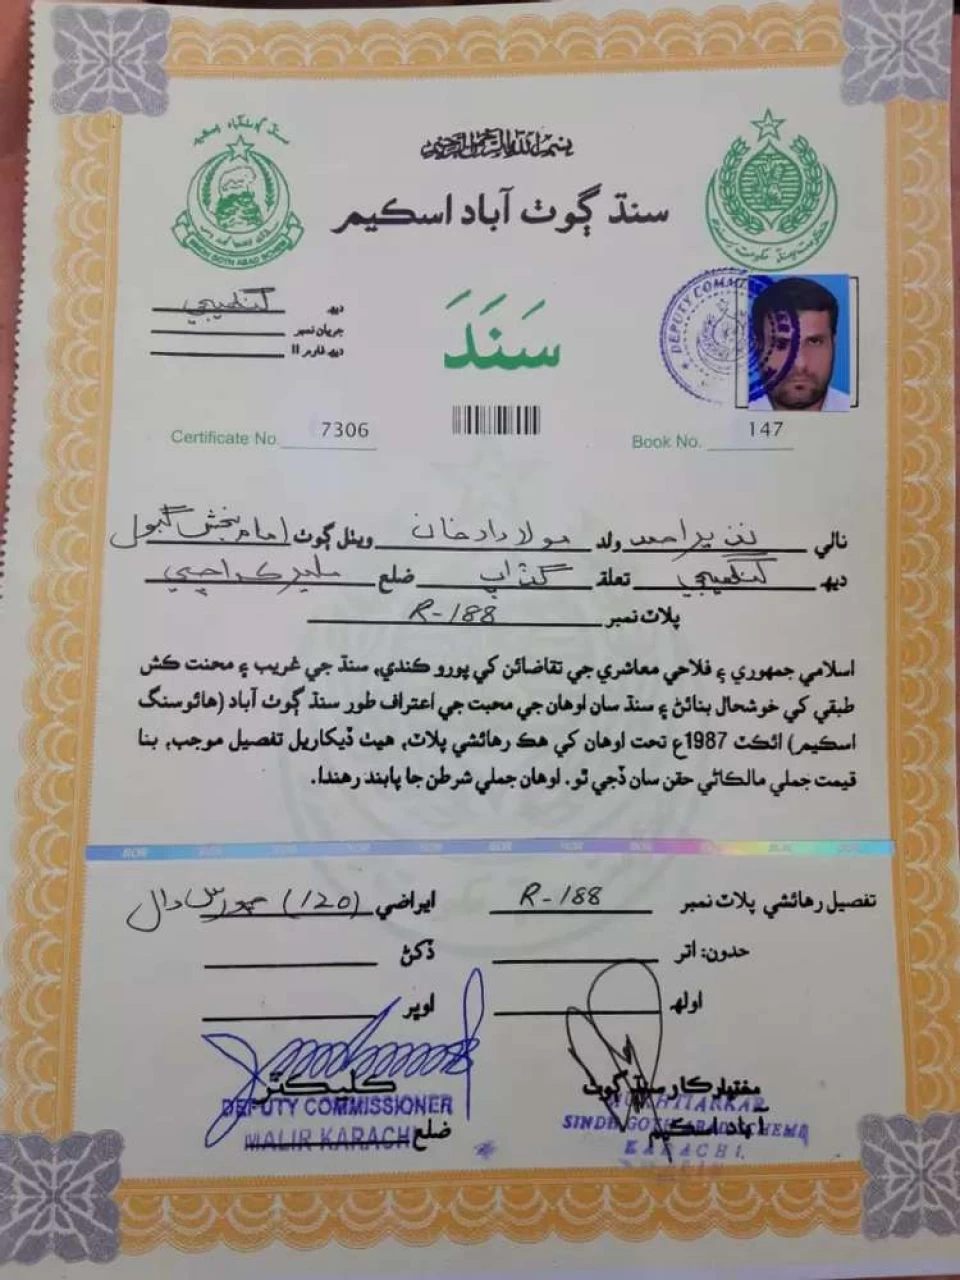 بسم الله الرحمن الرحيم
سنڌ ڳوٺ آباد اسڪيم
SINDH GOTH ABAD SCHEME
ديهه
جريان نمبر
ديهه فارم II
سَنَدَ
DEPUTY COMMI
Certificate No. 7306
Book No. 147
نالي نذير احمد ولد مولاداد خان ويٺل ڳوٺ امام بخش گبول
ديهه تعلقه گڏاپ ضلع ملير ڪراچي
پلاٽ نمبر R-188
اسلامي جمهوري ۽ فلاحي معاشري جي تقاضائن کي پورو ڪندي، سنڌ جي غريب ۽ محنت ڪش
طبقي کي خوشحال بنائڻ ۽ سنڌ سان اوهان جي محبت جي اعتراف طور سنڌ ڳوٺ آباد (هائوسنگ
اسڪيم) ائڪٽ 1987ع تحت اوهان کي هڪ رهائشي پلاٽ، هيٺ ڏيکاريل تفصيل موجب، بنا
قيمت جملي مالڪاڻي حقن سان ڏجي ٿو. اوهان جملي شرطن جا پابند رهندا.
تفصيل رهائشي پلاٽ نمبر R-188 ايراضي (120)
حدون: اتر ڏکڻ
اولهه اوڀر
مختيارڪار سنڌ ڳوٺ آباد اسڪيم
MUKHTIARKAR
SINDH GOTH ABAD SCHEME
KARACHI
ڪليڪٽر
DEPUTY COMMISSIONER
ضلع
MALIR KARACHI